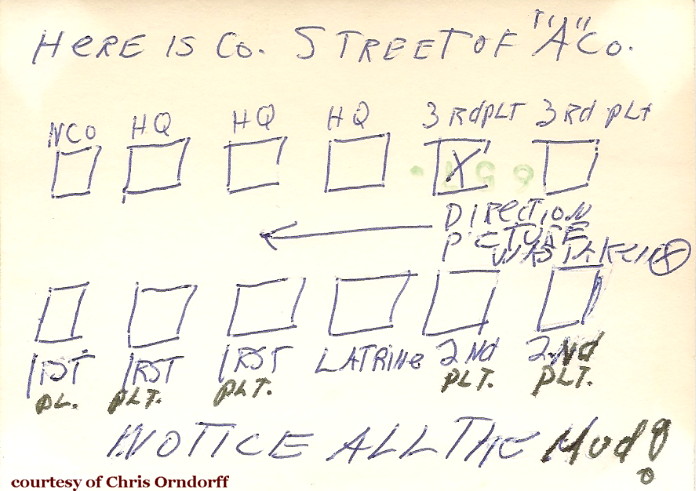 HERE IS CO. STREET OF "A" CO.
NCO HQ HQ HQ 3RD PLT 3Rd PLT
X
DIRECTION
PICTURE
WAS TAKEN X
1ST 1RST 1RST LATRINE 2Nd 2Nd
PL. PLT. PLT. PLT. PLT.
NOTICE ALL THE Mud!
courtesy of Chris Orndorff